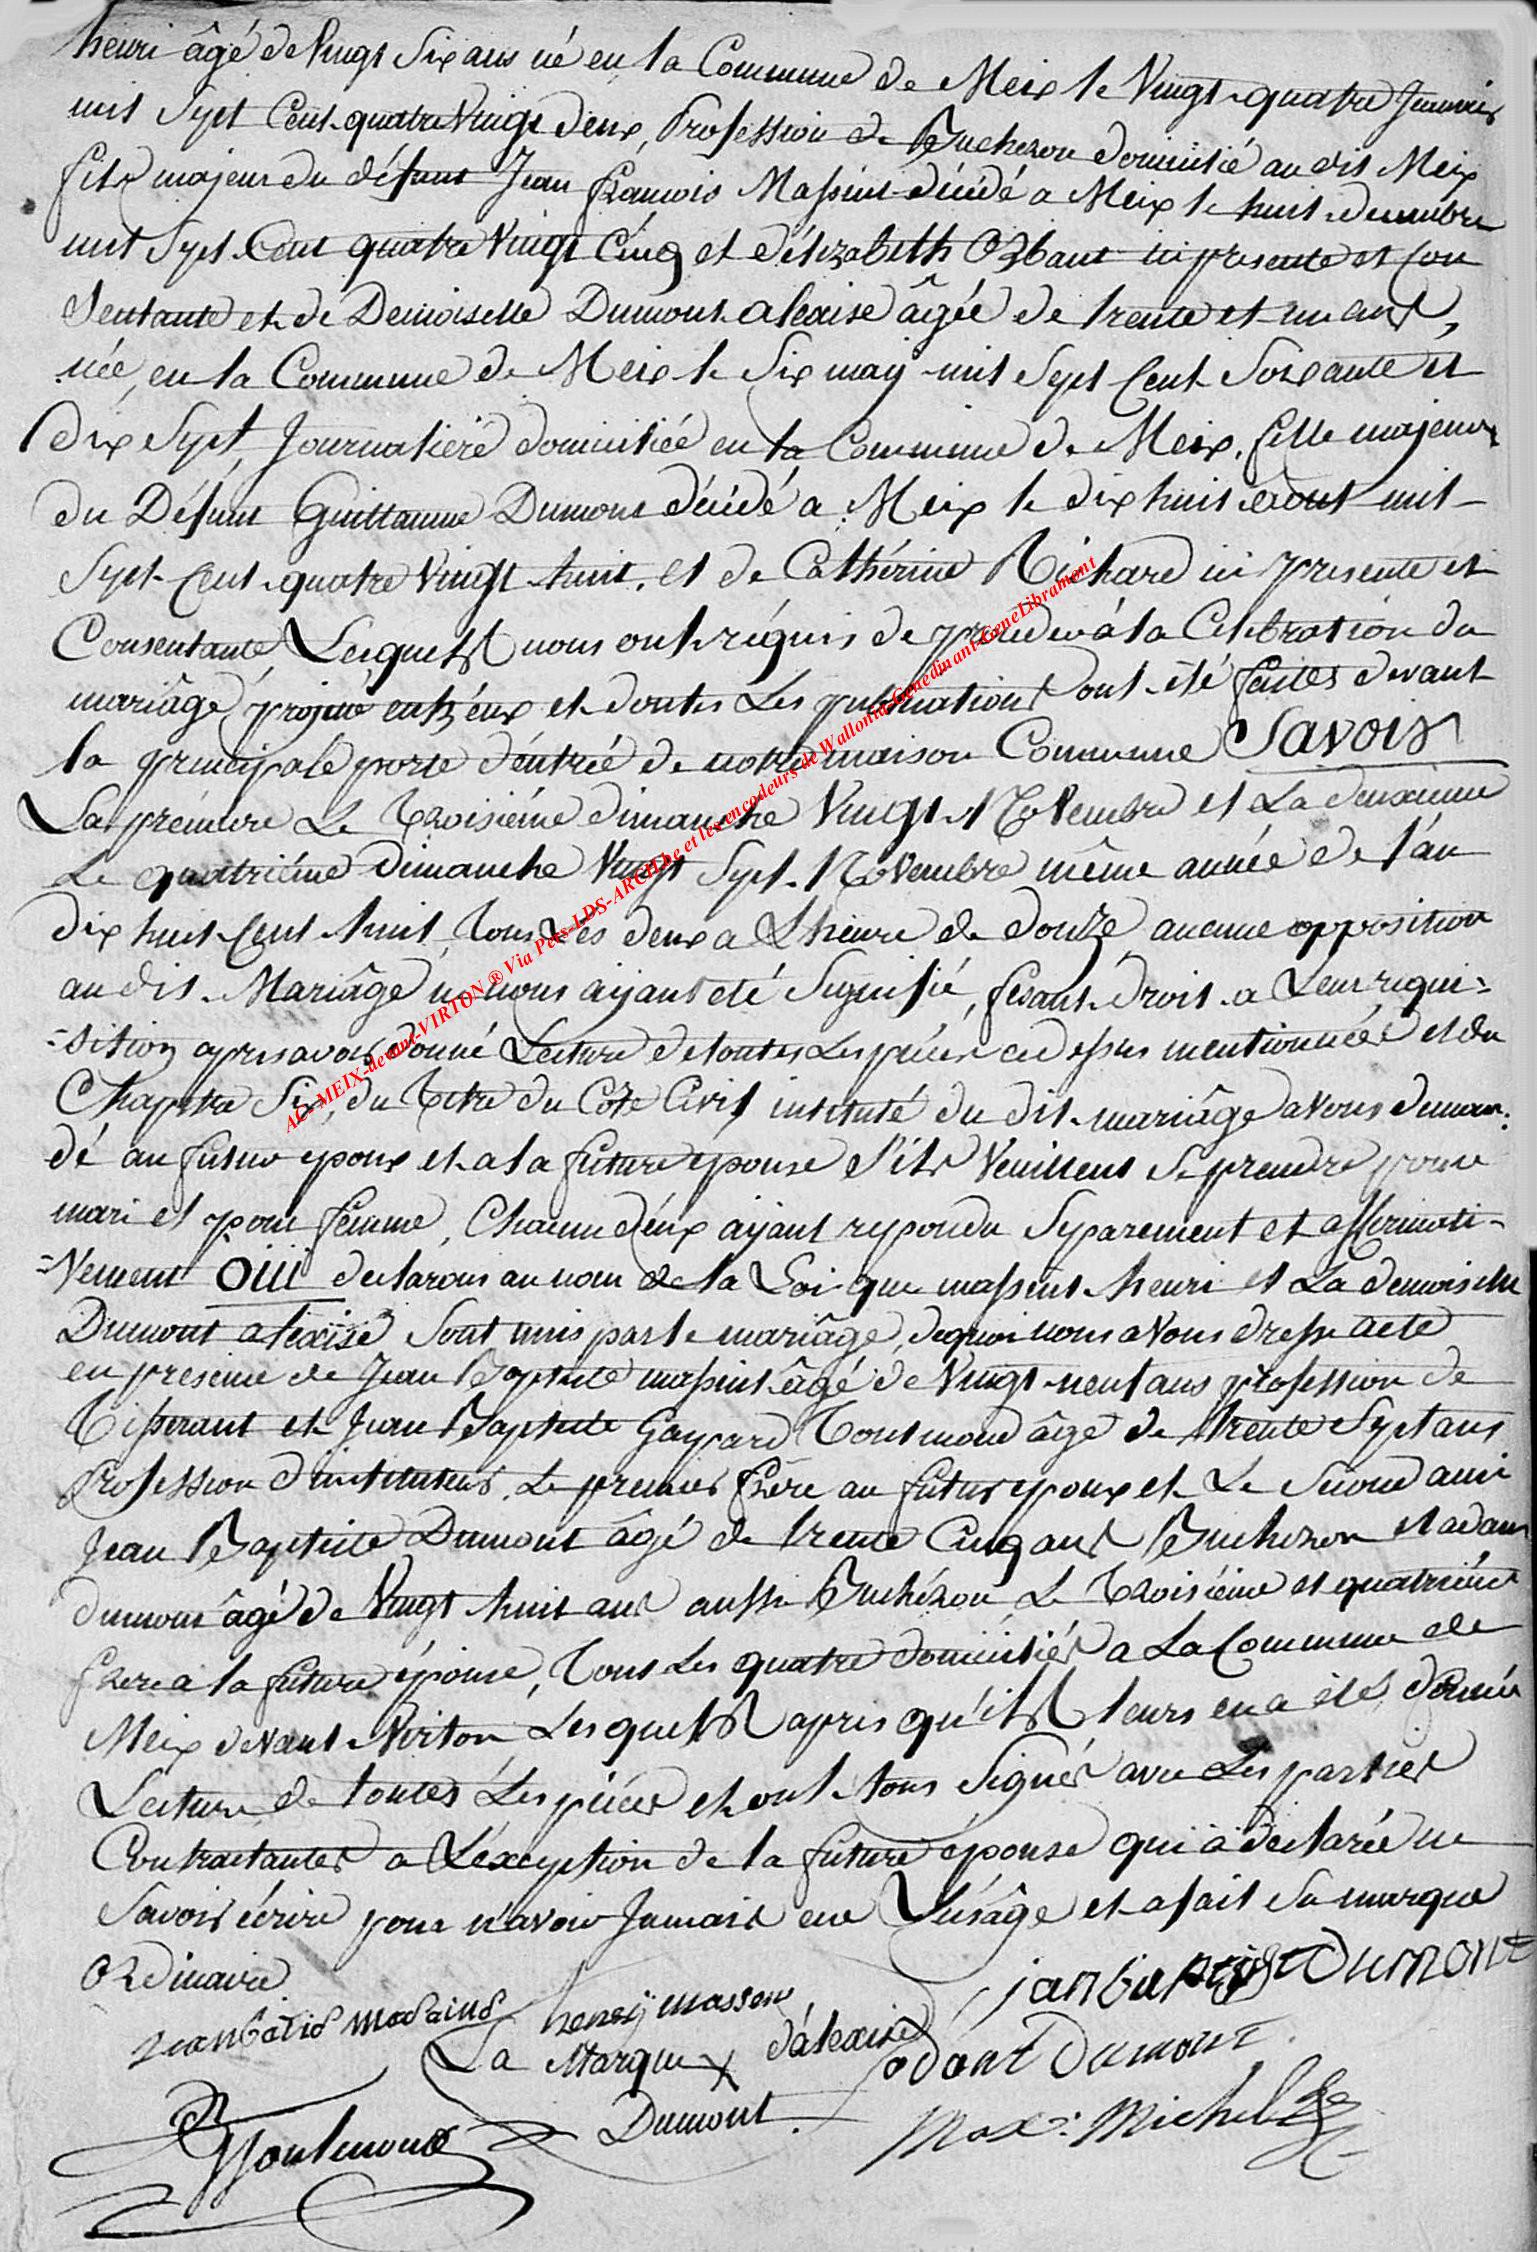 henri âgé de Vingt Six ans né en la Commune de Meix le Vingt-quatre Janvier
mil Sept Cent quatre Vingt deux, Profession de Bucheron domicilié au dit Meix
fils majeur du défunt Jean françois Massint décédé a Meix le huit decembre
mil Sept Cent quatre Vingt Cinq et d'élizabeth Orbant ici presente et Con
Sentante et de Demoiselle Dumont alexise âgée de trente et un ans,
née, en la Commune de Meix le Six maij mil Sept Cent Soixante et
dix Sept, Journaliéré domiciliée en la Commune de Meix, fille majeure
du Défunt Guillaume Dumont décédé a Meix le dix huit aout mil
Sept Cent quatre Vingt huit, et de Cathérine Richard ici presente et
Consentante, Lesquels nous ont réquis de procéder á la Celebration du
mariâge projeté entr'eux et dontes Les publications ont été faites devant
la principale porte d'éntréé de notre maison Commune Savoir
La prémiere Le Troisiéme dimanche Vingt Novembre et La deuxieme
Le quatriéme Dimanche Vingt Sept Novembre même année de l'an
dix huit Cent huit Tous Les deux a L'heure de douze, aucune opposition
au dit Mariâge n'e nous aijant eté Signifié, fesant droit a Leur requi=
=sition apres avoir donné Lecture de toutes Les piéces cidessus mentionnéés et du
Chapitre Six, du Titre du Code Civil intitulé du dit mariâge avons deman:
dé au futur epoux et a la future epouse S'ils Veuillent Se prendre pour
mari et pour femme, Chacun d'eux aijant repondu Separement et affirmati-
=Vement Oüi declarons au nom de la Loi que massint henri et La demoiselle
Dumont alexise Sont unis par le mariâge, de quoi nous avons dresse acte
en presence de Jean Baptiste massint âgé de Vingt neuf ans profession de
Tisserant et Jean Baptiste Gaspard Toulmond âge de trente Sept ans
Profession d'instituteur. Le premier frère au futur epoux et Le Second ami
Jean Baptiste Dumont âgé de trente Cinq ans Bucheron et adam
dumont âgé de Vingt huit ans aussi Buchéron, Le Troisiéme et quatriéme
frere a la future épouse, Tous Les quatre domiciliés a La Commune de
Meix devant Virton Lesquels apres qu'ils leurs en a été donnée
Lecture de toutes Les piéces et ont tous Signés avec Les parties
Contractantes a L'éxception de la future épouse qui à declarée ne
Savoir écrire pour n'avoir Jamais eue L'usâge et a fait Sa marque
Ordinaire
janbaptist Dumont
henrÿ massen
La Marque X d'alexise
adant Dumont
Dumont
Toulmond
Max: Michel
AC-MEIX-devant-VIRTON ® Via Pets-LDS-ARCH.be et les encodeurs de Wallonia-Genedinant-GeneLibramont